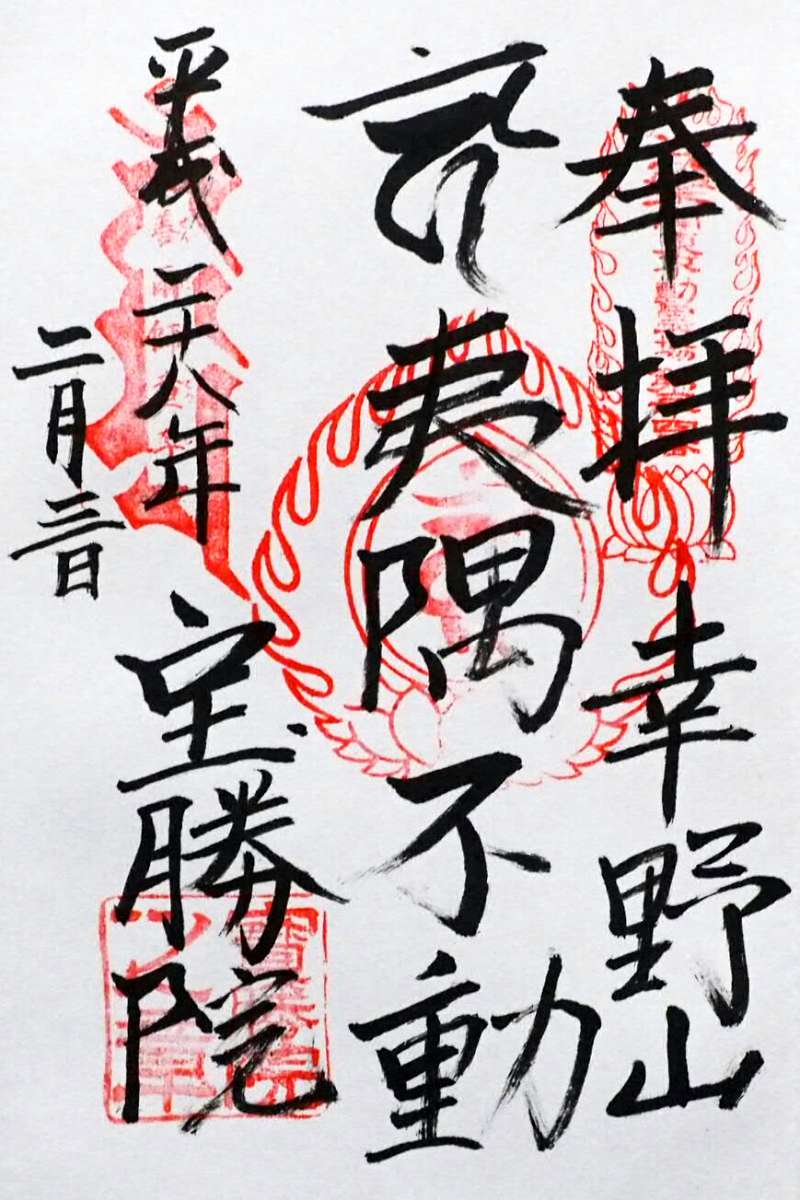 奉拝 幸野山
夷隅不動
平成二十八年
二月三日
宝勝院